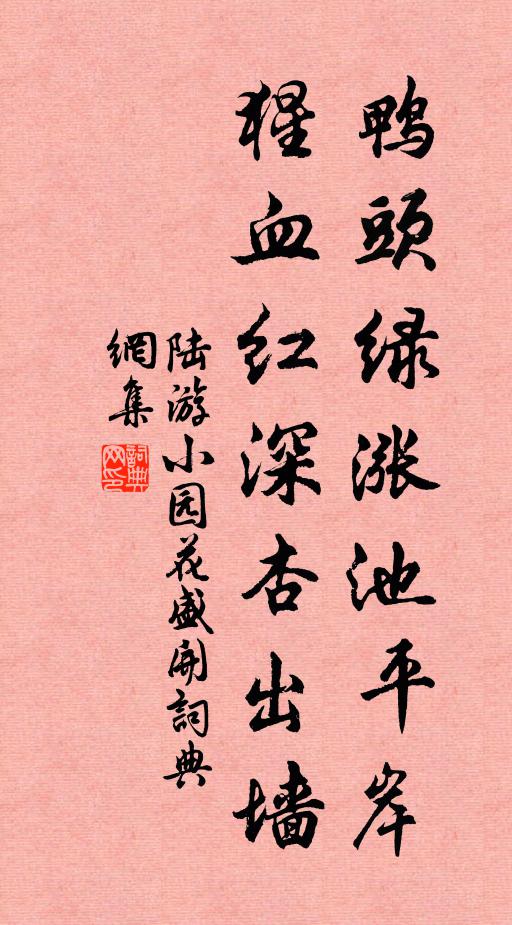 鸭頭绿涨池平岸
猩血红深杏出墙
陆游小园花盛开詞典
網集
詞典
网印